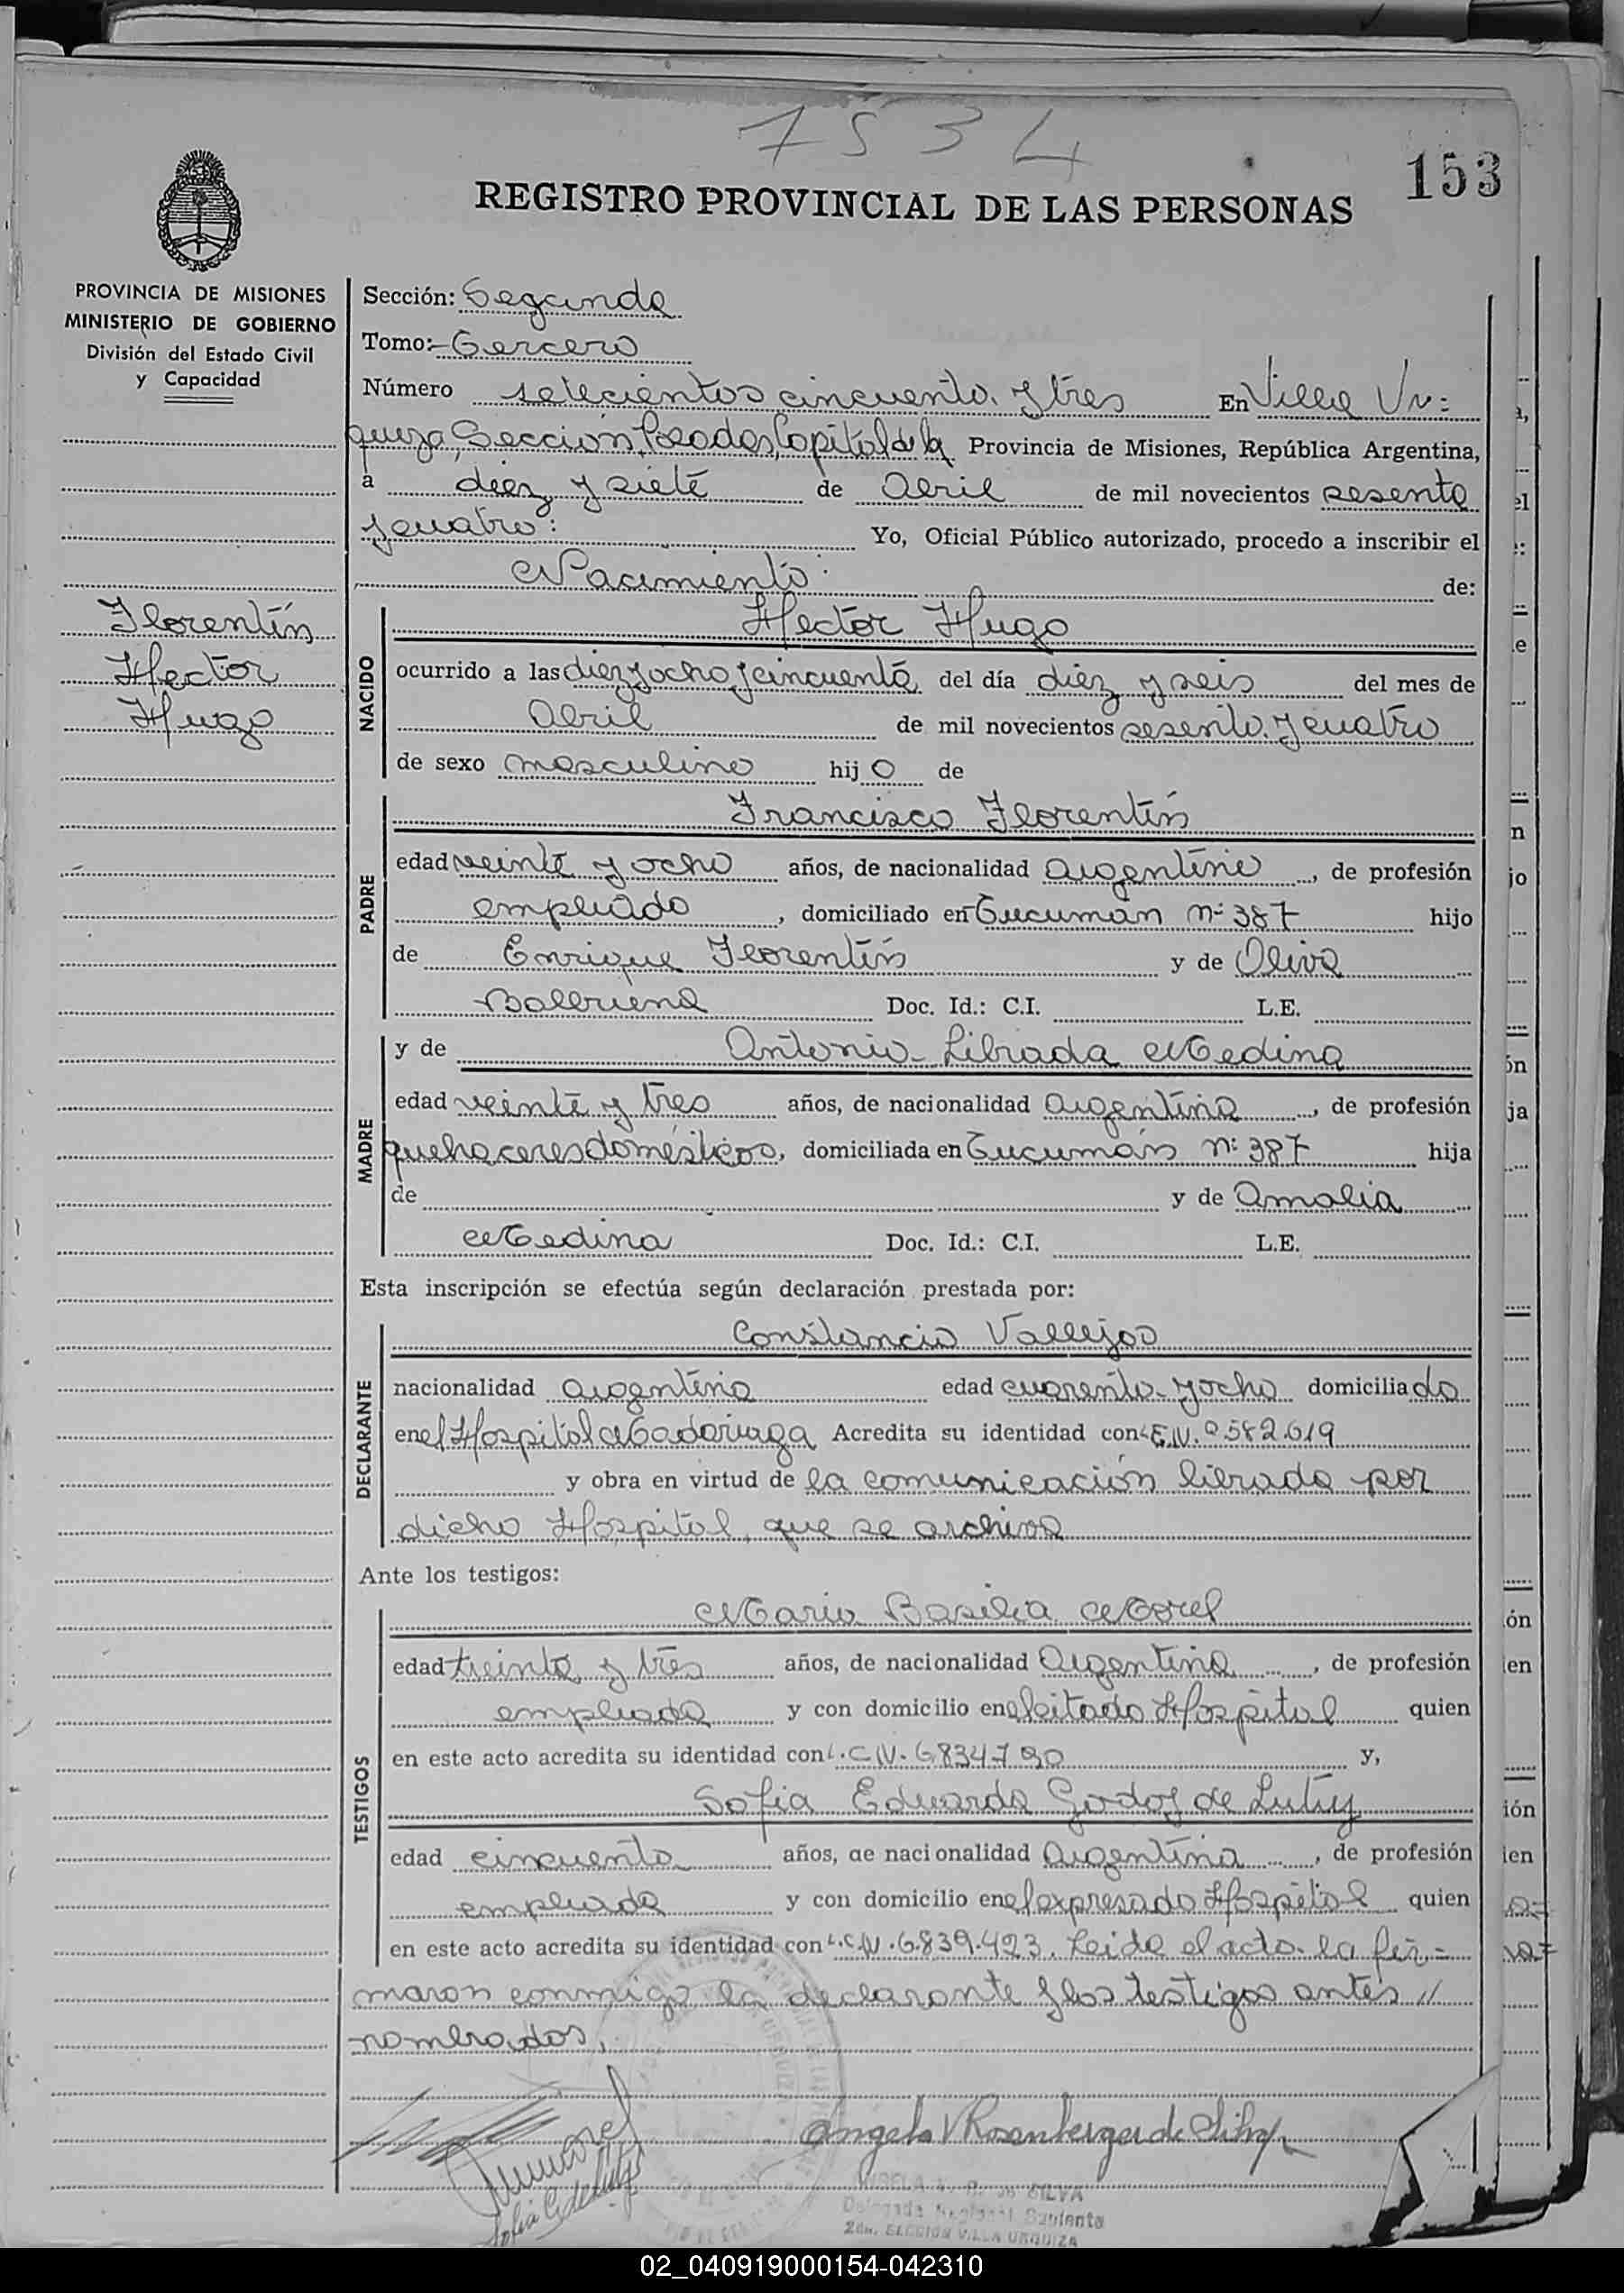 7534
153
REGISTRO PROVINCIAL DE LAS PERSONAS
PROVINCIA DE MISIONES
MINISTERIO DE GOBIERNO
División del Estado Civil
y Capacidad
Sección: Segunda
Tomo: Tercero
Número setecientos cincuenta y tres En Villa Ur=
quiza, Sección, Posadas, Capital de la Provincia de Misiones, República Argentina,
a diez y siete de Abril de mil novecientos sesenta
y cuatro: Yo, Oficial Público autorizado, procedo a inscribir el
Nacimiento: de:
Florentín
Hector
Hugo
NACIDO
Hector Hugo
ocurrido a las diez y ocho y cincuenta del día diez y seis del mes de
Abril de mil novecientos sesenta y cuatro
de sexo masculino hijo de
PADRE
Francisco Florentín
edad veinte y ocho años, de nacionalidad argentino, de profesión
empleado, domiciliado en Tucumán nº 387 hijo
de Enrique Florentín y de Oliva
Balbuena Doc. Id.: C.I. L.E.
MADRE
y de Antonia Librada Medina
edad veinte y tres años, de nacionalidad argentina, de profesión
quehaceres domésticos, domiciliada en Tucumán nº 387 hija
de y de Amalia
Medina Doc. Id.: C.I. L.E.
Esta inscripción se efectúa según declaración prestada por:
DECLARANTE
Constancia Vallejos
nacionalidad argentina edad cuarenta y ocho domiciliada
en el Hospital Madariaga Acredita su identidad con 582.619
y obra en virtud de la comunicación librada por
dicho Hospital, que se archiva
Ante los testigos:
TESTIGOS
Maria Basilia Morel
edad treinta y tres años, de nacionalidad Argentina, de profesión
empleada y con domicilio en el citado Hospital quien
en este acto acredita su identidad con L.C.N. 6834790 y,
Sofia Eduarda Godoy de
edad cincuenta años, de nacionalidad Argentina, de profesión
empleada y con domicilio en el expresado Hospital quien
en este acto acredita su identidad con L.C.N. 6.839.423. Leida el acta la fir=
maron conmigo la declarante y los testigos antes //
nombrados,
Angela V Rosenberger de Silva
ANGELA V. R. de SILVA
Delegada Regional Suplente
2da. SECCION VILLA URQUIZA
02_040919000154-042310